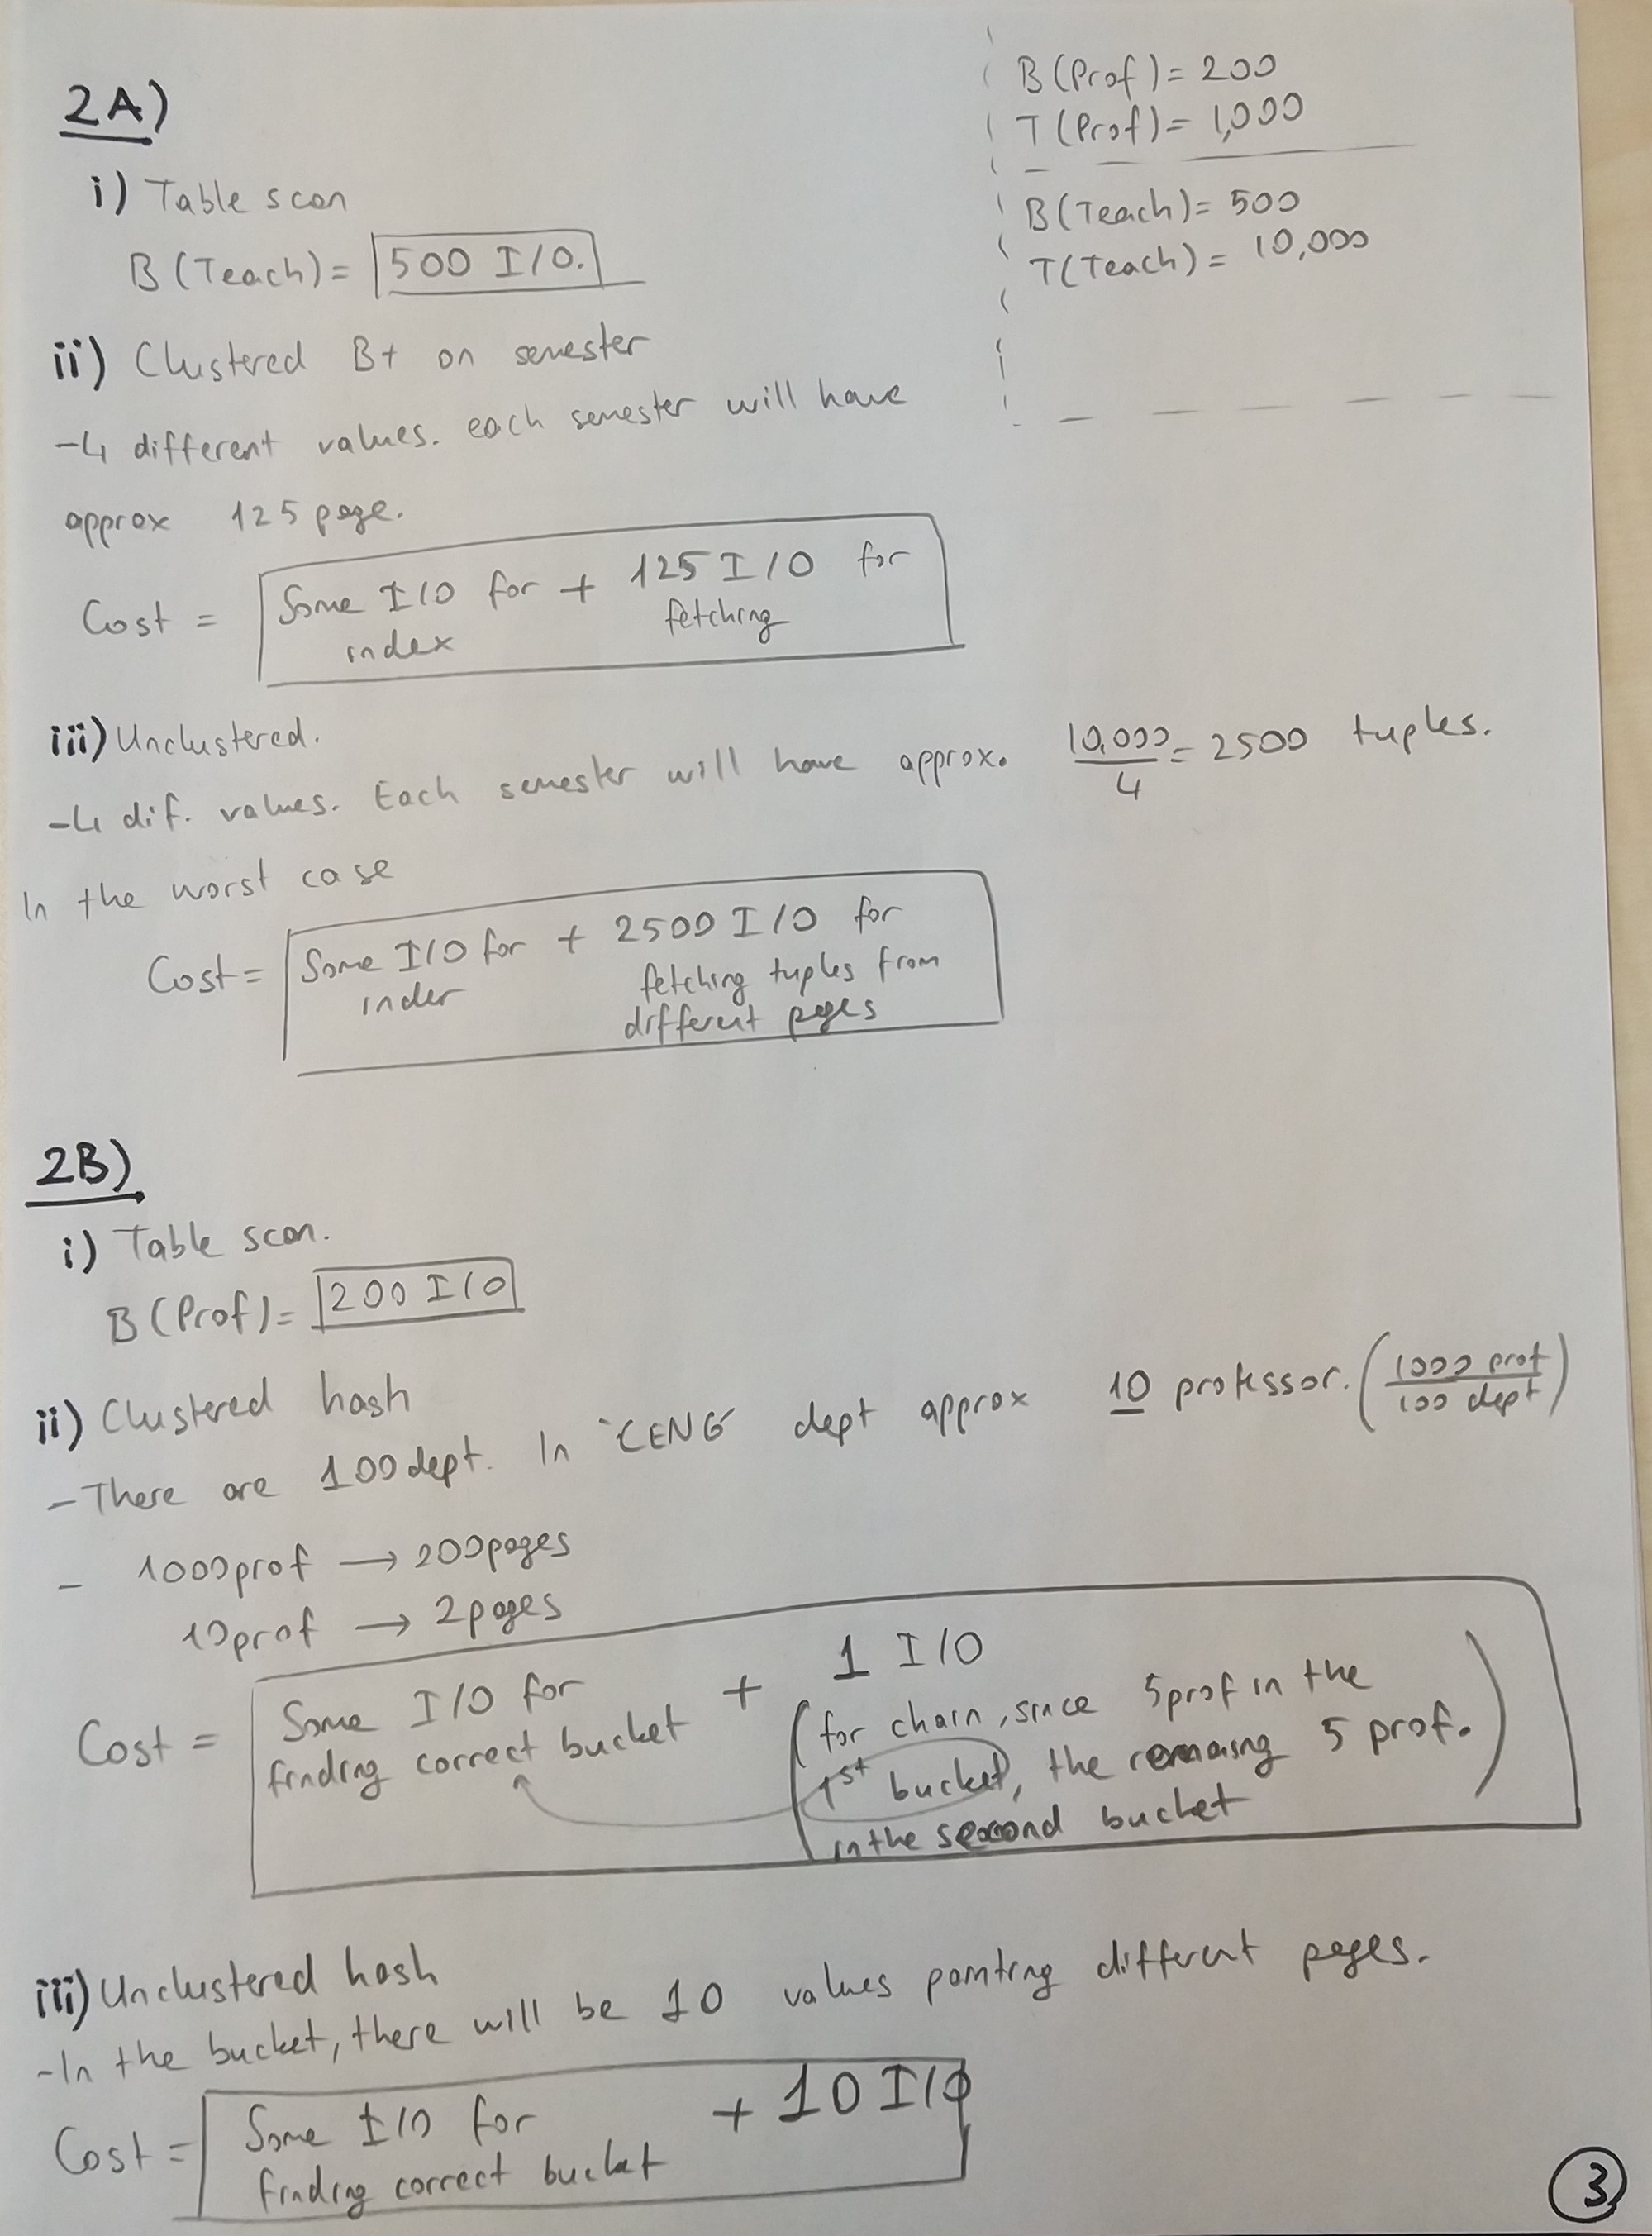 B(Prof) = 200
T(Prof) = 1,000
B(Teach) = 500
T(Teach) = 10,000
2A)
i) Table scan
B(Teach) = 500 I/O.
ii) Clustered B+ on semester
-4 different values. each semester will have
approx 125 page.
Cost = Some I/O for + 125 I/O for
index fetching
iii) Unclustered.
-4 dif. values. Each semester will have approx. 10,000/4 = 2500 tuples.
In the worst case
Cost = Some I/O for + 2500 I/O for
index fetching tuples from
different pages
2B)
i) Table scan.
B(Prof) = 200 I/O
ii) Clustered hash
-There are 100 dept. In CENG dept approx 10 professor. (1000 prof/100 dept)
- 1000 prof → 200 pages
10 prof → 2 pages
Cost = Some I/O for + 1 I/O
finding correct bucket (for chain, since 5 prof in the
1st bucket, the remaing 5 prof.
in the second bucket)
iii) Unclustered hash
-In the bucket, there will be 10 values pointing different pages.
Cost = Some I/O for + 10 I/O
finding correct bucket
3